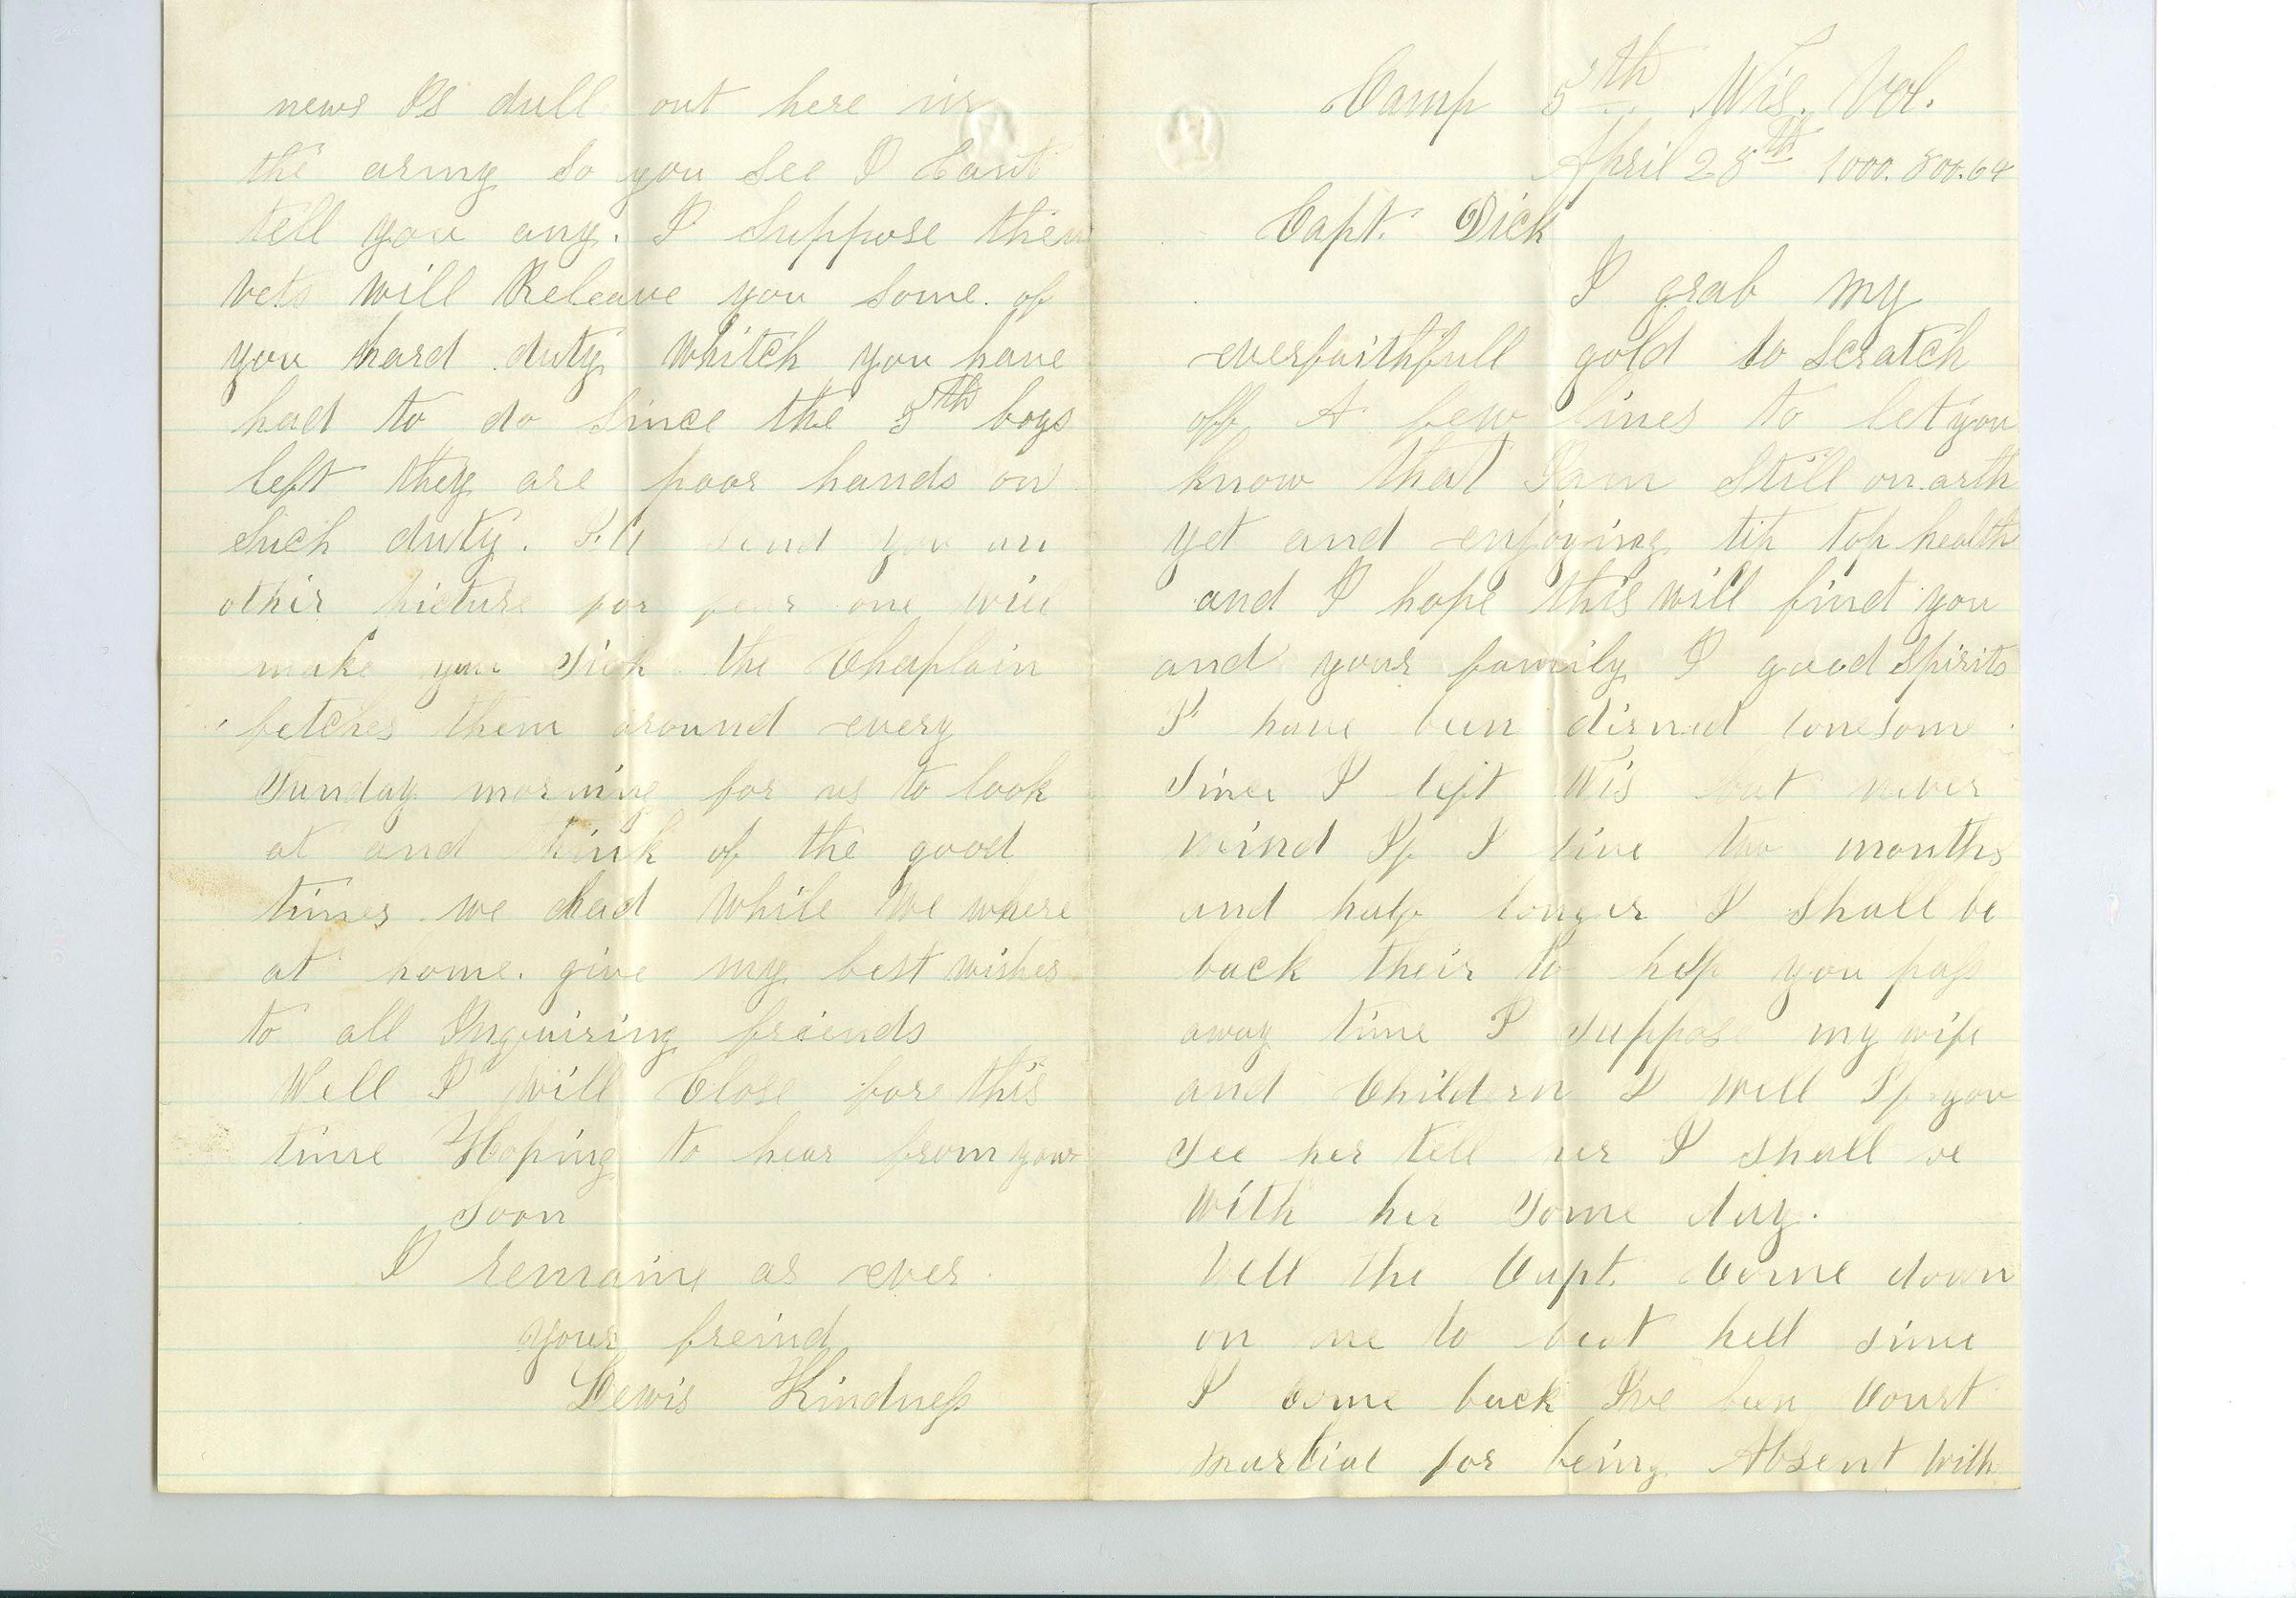 Camp 5th Wis. Vol.
April 28th 1000.800.64
Capt. Dick
I grab my
everfaithfull gold to Scratch
off A few lines to let you
know that I am Still on arth
yet and enjoying tip top health
and I hope this will find you
and your family I good Spirits
I have ben dirned lonesome
Since I left Wis but never
mind If I live two months
and half longer I Shall be
back their to help you pass
away time I suppose my wife
and Children I Well If you
See her tell her I shall be
With her Some day.
Well the Capt. Come down
on me to beat hell since
I Come back I've ben Court
martial for being Absent With
news Is dull out here in
the army So you See I Cant
tell you any. I Suppose them
vets will Releave you Some of
you hard duty Whitch you have
had to do Since the 5th boys
left they are poor hands on
Such duty. I'll send you an
other picture for fear one will
make you Sick the Chaplain
fetches them around every
Sunday morning for us to look
at and think of the good
times we had While We where
at home. give my best wishes
to all Inquiring friends
Well I will Close fore this
time Hoping to hear from your
Soon
I remaine as ever
your freind
Lewis Kindness